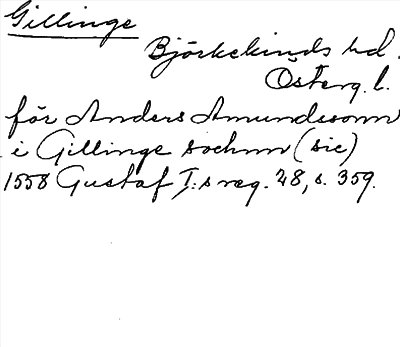 Gillinge
Björkekinds hd.
Österg. l.
för Anders Amundssonn
i Gillinge sochnn (sic)
1558 Gustaf I:s reg. 28, s. 359.